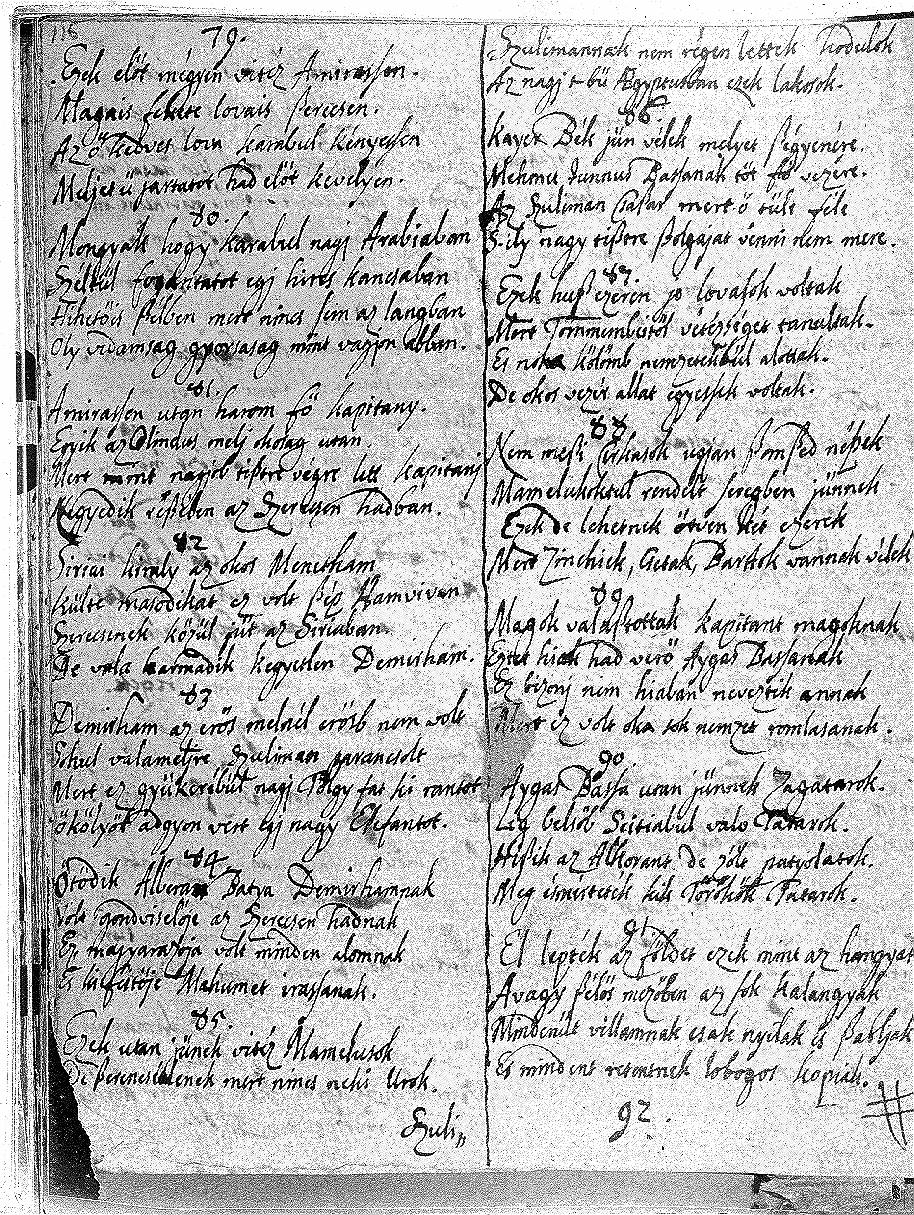 118
79.
Ezek elöt mégyen vitéz Amirassen.
Magais fekete lovais ßerecsen.
Az ö kedves lova karabul kényessen
Meljet ü jartatot had elöt kevélyen.
80.
Mongyák hogy karabul nagj Arabiaban
Széltül fogantatot egj hires kancsaban
Hihetöis ßélben mert nincs sem az langban
Oly vidamsag gyorsasag mint vagjon abban.
81.
Amirassen utan harom fö kapitany.
Egyik az Olindus melj okosag utan.
Mert mint nagjob tißtre végre lett kapitanj
Negyedik réßében az Szerecsen hadban.
82
Siriai kiraly az okos Menetham
külte masodikat ez volt ßép Hamvivan
Szerecsenek közül jüt az Siriaban
De vala harmadik kegyetlen Demirham.
83
Demirham az erös melnél erösb nem volt
Sohul valamerre Szuliman parancsolt
Mert ez gyükerébül nagj Tölgy fat ki rantot
ökölyöt adgyon vert egj nagy Elefantot.
84
Ötödik Alberan Batva Demirhamnak
volt gondviselöje az Szerecsen hadnak
Ez magyarazoja volt minden alomnak
Es kifestöje Mahumet irassanak.
85.
Ezek utan jünek vitéz Mamelusok
De ßerencsétlenek mert nincs nekik Urok.
Szuli„
Szulimannak nem régen lettek hodulok
Az nagj t bü Ægyptusban ezek lakosok.
86.
kayer Bék jün vélek melyet ßégyenére.
Mehmet Iunnus Bassanak töt fö vezére.
Az Suliman Csasar mert ö tüle féle
S ily nagy tißtre ßolgajat venni nem mere.
87.
Ezek huß ezeren jo lovasok voltak
Mert Tommembéstöl vitézséget tanultak.
Es noha külömb nemzetekbül alottak.
De okos vezér allat egyessek voltak.
88
Nem meßi Csirkasok ugjan ßomßed népek
Mamelukoktul rendelt seregben jünnek
Ezek de lehetnek ötven két ezerek
Mert Zinchiek, Getak, Bastrok vannak vélek
89
Magok valaßtottak kapitant magoknak
Eztet hiak had verö Aygas Bassanak
Ez bizonj nem hiaban neveztik annak
Mert ez volt oka sok nemzet romlasanak.
90.
Aygas Bassa utan jünnek Zagatarok.
Leg belsöb Scitiabul valo Tatarok.
Hißik az Alkorant de zölt patyolatok.
Meg ismertetik kik Törökök Tatarok.
91
El lepték az földet ezek mint az hangyak
Avagy félös mezöben az sok kalangyak
Mindenüt villamnak csak nyilak és ßabljak
Es mindent retentnek lobogos kopiak.
92.